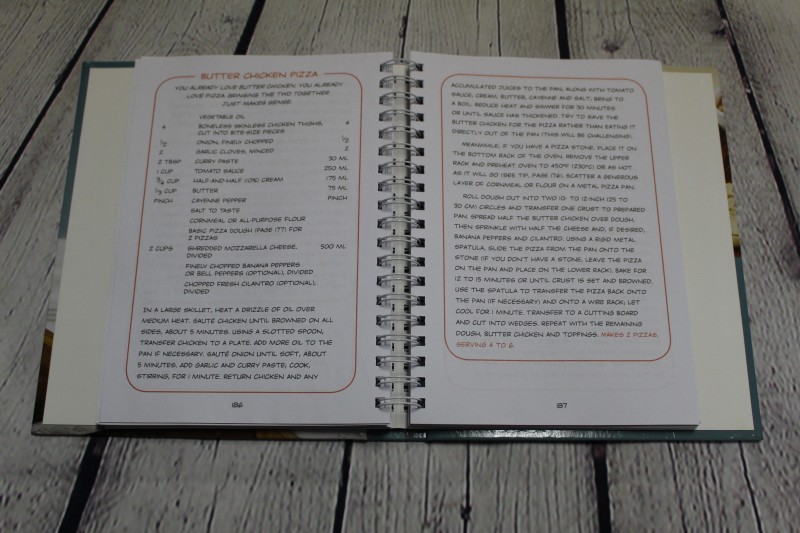 BUTTER CHICKEN PIZZA
YOU ALREADY LOVE BUTTER CHICKEN; YOU ALREADY
LOVE PIZZA. BRINGING THE TWO TOGETHER
JUST MAKES SENSE.
VEGETABLE OIL
4 BONELESS SKINLESS CHICKEN THIGHS, 4
CUT INTO BITE-SIZE PIECES
1/2 ONION, FINELY CHOPPED 1/2
2 GARLIC CLOVES, MINCED 2
2 TBSP CURRY PASTE 30 ML
1 CUP TOMATO SAUCE 250 ML
3/4 CUP HALF-AND-HALF (10%) CREAM 175 ML
1/3 CUP BUTTER 75 ML
PINCH CAYENNE PEPPER PINCH
SALT TO TASTE
CORNMEAL OR ALL-PURPOSE FLOUR
BASIC PIZZA DOUGH (PAGE 177) FOR
2 PIZZAS
2 CUPS SHREDDED MOZZARELLA CHEESE, 500 ML
DIVIDED
FINELY CHOPPED BANANA PEPPERS
OR BELL PEPPERS (OPTIONAL), DIVIDED
CHOPPED FRESH CILANTRO (OPTIONAL),
DIVIDED
IN A LARGE SKILLET, HEAT A DRIZZLE OF OIL OVER
MEDIUM HEAT. SAUTÉ CHICKEN UNTIL BROWNED ON ALL
SIDES, ABOUT 5 MINUTES. USING A SLOTTED SPOON,
TRANSFER CHICKEN TO A PLATE. ADD MORE OIL TO THE
PAN IF NECESSARY. SAUTÉ ONION UNTIL SOFT, ABOUT
5 MINUTES. ADD GARLIC AND CURRY PASTE; COOK,
STIRRING, FOR 1 MINUTE. RETURN CHICKEN AND ANY
186
ACCUMULATED JUICES TO THE PAN, ALONG WITH TOMATO
SAUCE, CREAM, BUTTER, CAYENNE AND SALT; BRING TO
A BOIL. REDUCE HEAT AND SIMMER FOR 30 MINUTES
OR UNTIL SAUCE HAS THICKENED. TRY TO SAVE THE
BUTTER CHICKEN FOR THE PIZZA RATHER THAN EATING IT
DIRECTLY OUT OF THE PAN (THIS WILL BE CHALLENGING).
MEANWHILE, IF YOU HAVE A PIZZA STONE, PLACE IT ON
THE BOTTOM RACK OF THE OVEN. REMOVE THE UPPER
RACK AND PREHEAT OVEN TO 450°F (230°C) OR AS HOT
AS IT WILL GO (SEE TIP, PAGE 176). SCATTER A GENEROUS
LAYER OF CORNMEAL OR FLOUR ON A METAL PIZZA PAN.
ROLL DOUGH OUT INTO TWO 10- TO 12-INCH (25 TO
30 CM) CIRCLES AND TRANSFER ONE CRUST TO PREPARED
PAN. SPREAD HALF THE BUTTER CHICKEN OVER DOUGH,
THEN SPRINKLE WITH HALF THE CHEESE AND, IF DESIRED,
BANANA PEPPERS AND CILANTRO. USING A RIGID METAL
SPATULA, SLIDE THE PIZZA FROM THE PAN ONTO THE
STONE (IF YOU DON'T HAVE A STONE, LEAVE THE PIZZA
ON THE PAN AND PLACE ON THE LOWER RACK). BAKE FOR
12 TO 15 MINUTES OR UNTIL CRUST IS SET AND BROWNED.
USE THE SPATULA TO TRANSFER THE PIZZA BACK ONTO
THE PAN (IF NECESSARY) AND ONTO A WIRE RACK; LET
COOL FOR 1 MINUTE. TRANSFER TO A CUTTING BOARD
AND CUT INTO WEDGES. REPEAT WITH THE REMAINING
DOUGH, BUTTER CHICKEN AND TOPPINGS. MAKES 2 PIZZAS,
SERVING 4 TO 6.
187